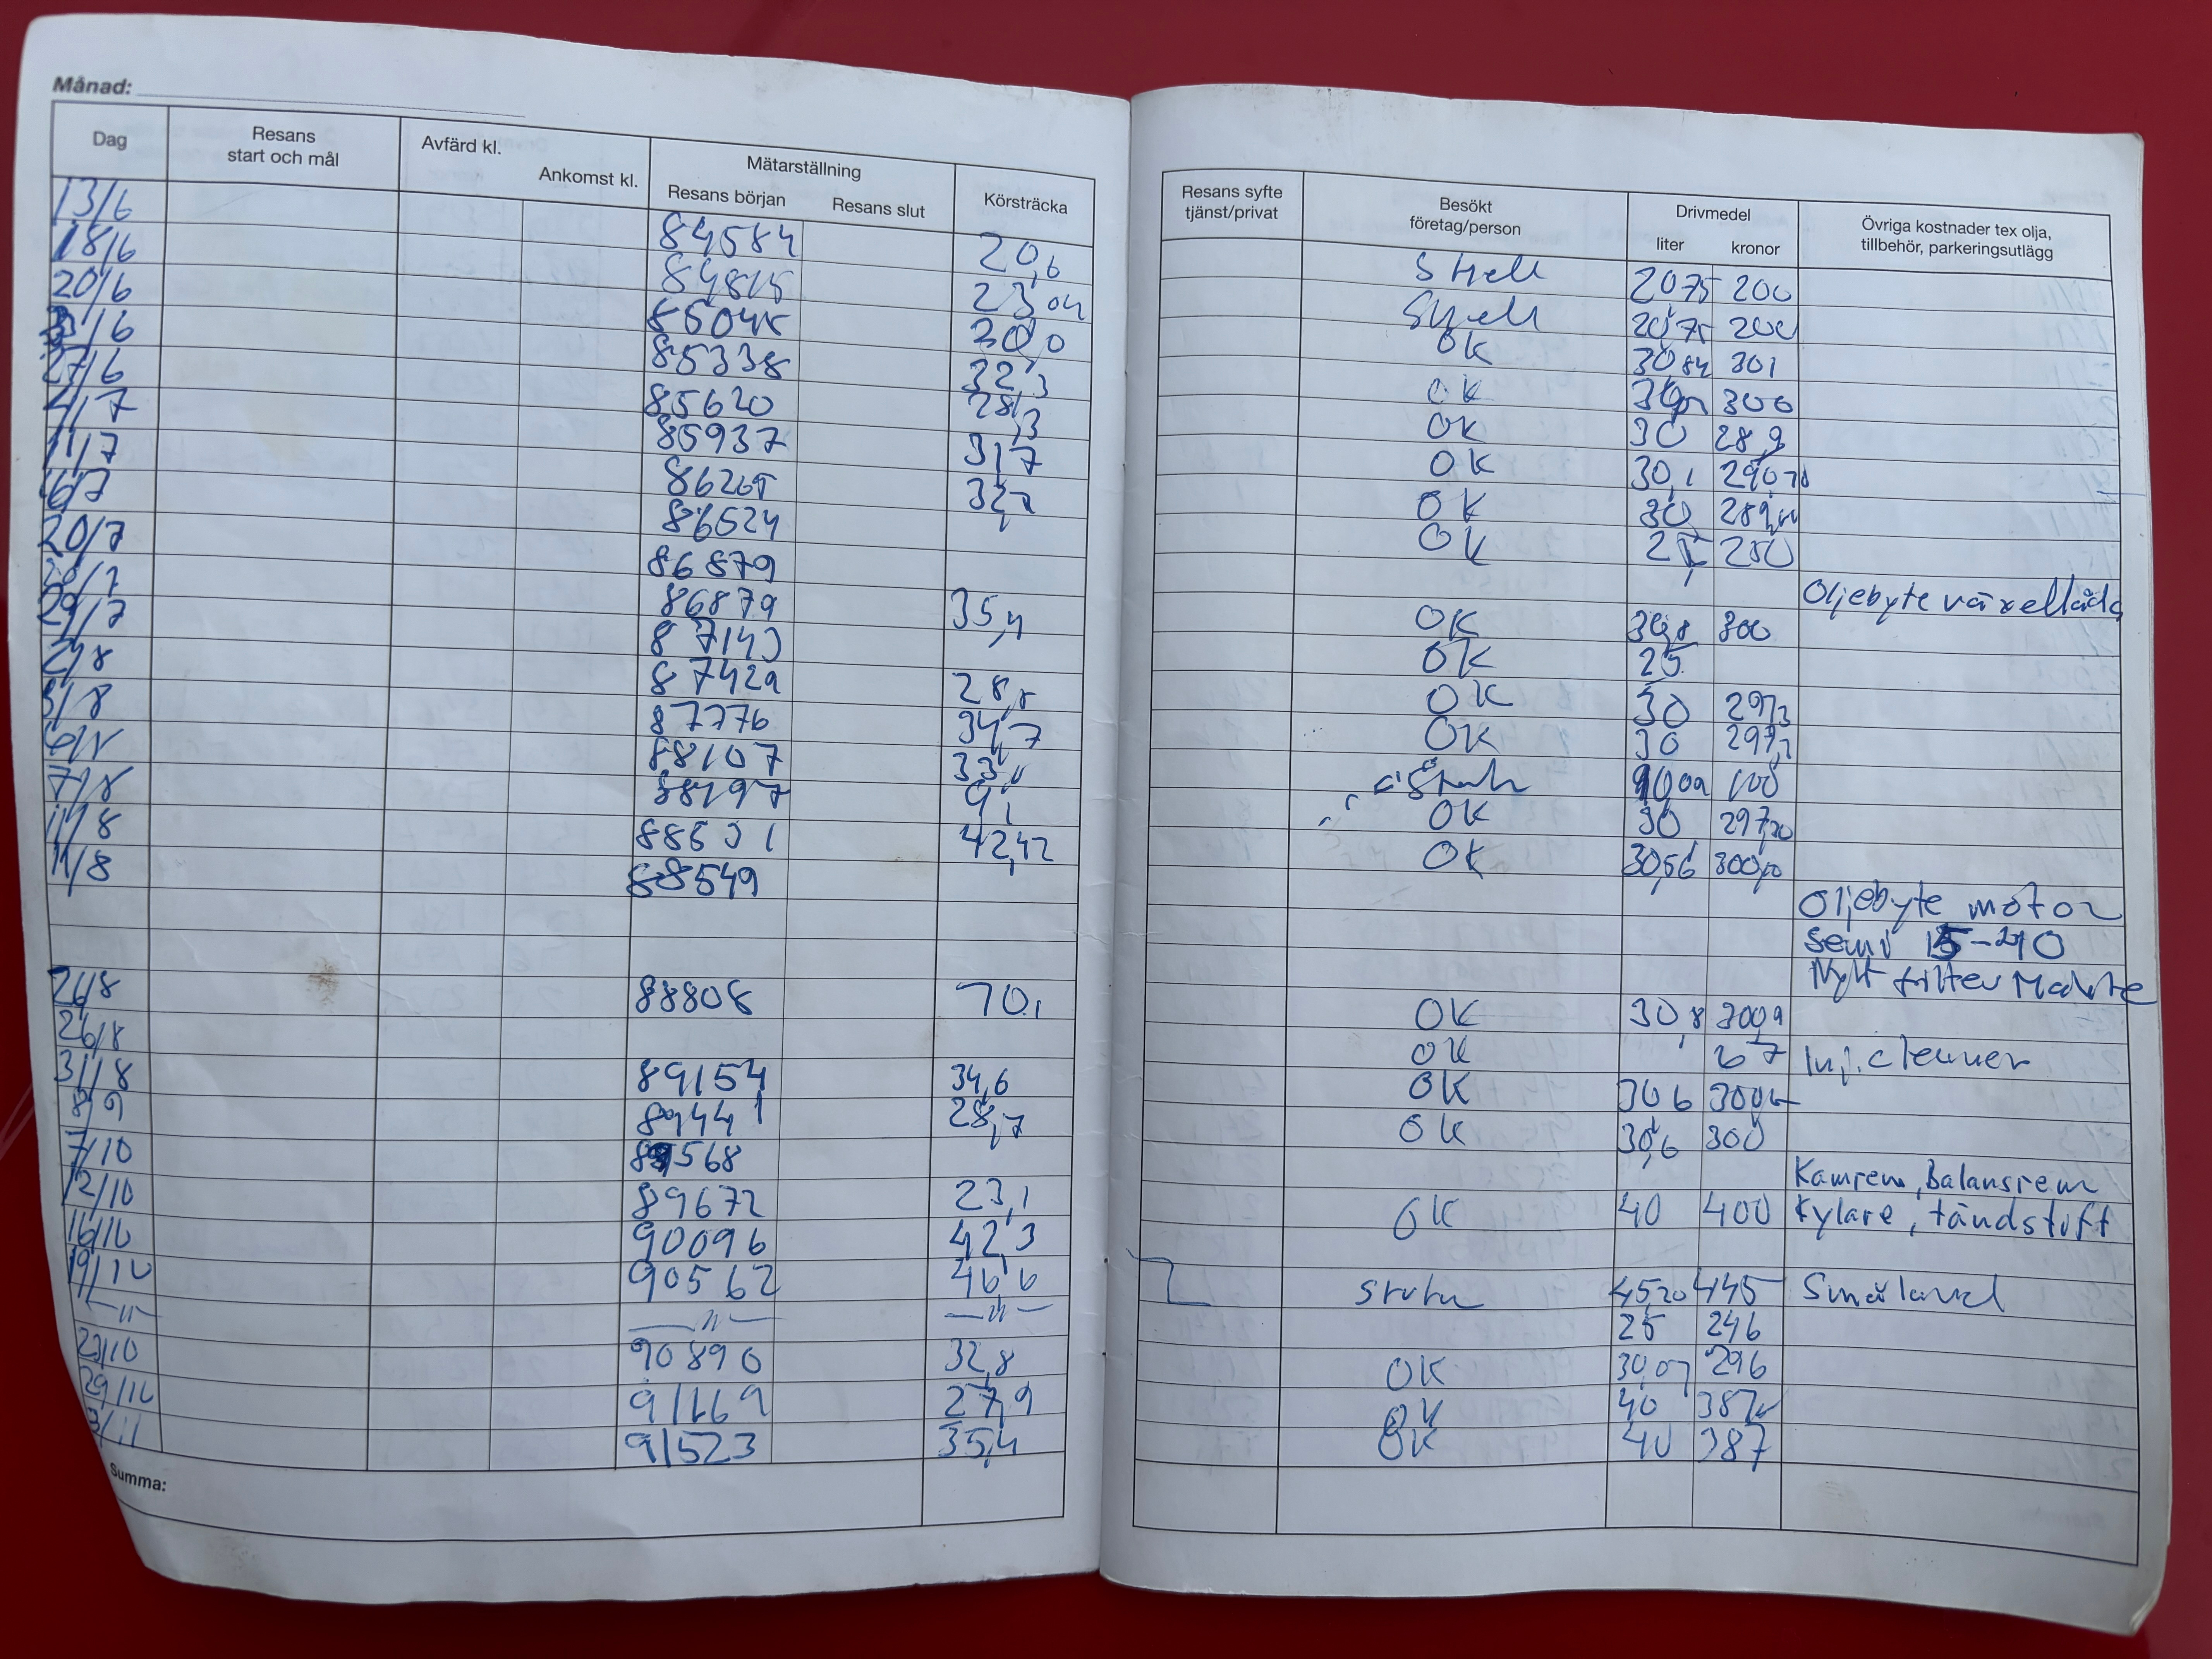 Månad:
Dag Resans start och mål Avfärd kl. Ankomst kl. Mätarställning Resans början Resans slut Körsträcka Resans syfte tjänst/privat Besökt företag/person Drivmedel liter kronor Övriga kostnader tex olja, tillbehör, parkeringsutlägg
13/6 84584 20,6 Shell 20,75 200
18/6 84815 23,04 Shell 20,75 200
20/6 85045 20,0 OK 30,84 301
/6 85338 32,3 OK 300
27/6 85620 28,3 OK 30 28,9
4/7 85937 31,7 OK 30,1 290,70
11/7 86265 32,7 OK 30 289,00
16/7 86524 OK 25 250
20/7 86879 Oljebyte växellåda
86879 35,4 OK 30,8 300
29/7 87143 OK 25
2/8 87429 28,5 OK 30 297,3
3/8 87776 34,7 OK 30 297,2
88107 33,0 100
7/8 88197 9,1 OK 30 297,20
11/8 88531 42,42 OK 30,56 300,10
11/8 88549 Oljebyte motor
Semi 15-40
Nytt filter
26/8 88808 70,1 OK 30,8 300,9
26/8 OK 67 Inj.cleaner
31/8 89154 34,6 OK 30 6 300
8/9 89441 28,7 OK 30,6 300
7/10 89568 Kamrem, Balansrem
12/10 89672 23,1 OK 40 400 Kylare, tändstift
16/10 90096 42,3
19/10 90562 46,6 45,20 445 Småland
—"— —"— —"— 25 246
23/10 90890 32,8 OK 30,07 296
29/10 91169 27,9 OK 40 387
3/11 91523 35,4 OK 40 387
Summa: